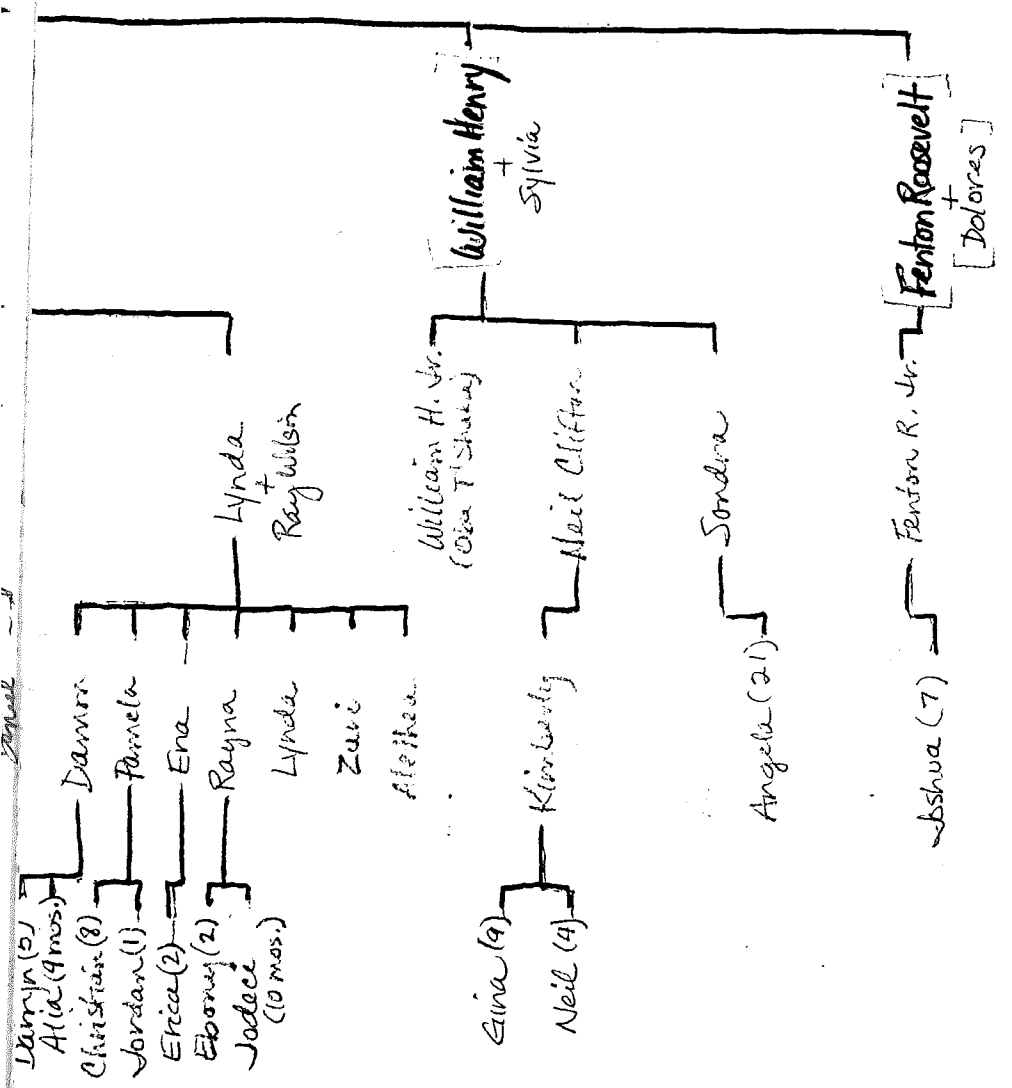 [William Henry]
+
Sylvia
[Fenton Roosevelt]
+
[Dolores]
Lynda
+
Ray Wilson
William H. Jr.
Neil Clifton
Sondra
Fenton R. Jr.
Damon
Pamela
Ena
Rayna
Lynda
Zuri
Alethea
Kimberly
Angela (21)
Joshua (7)
Damyn (5)
Alia (9 mos.)
Christian (8)
Jordan (1)
Erica (2)
Ebony (2)
Jodeci
(10 mos.)
Gina (9)
Neil (4)